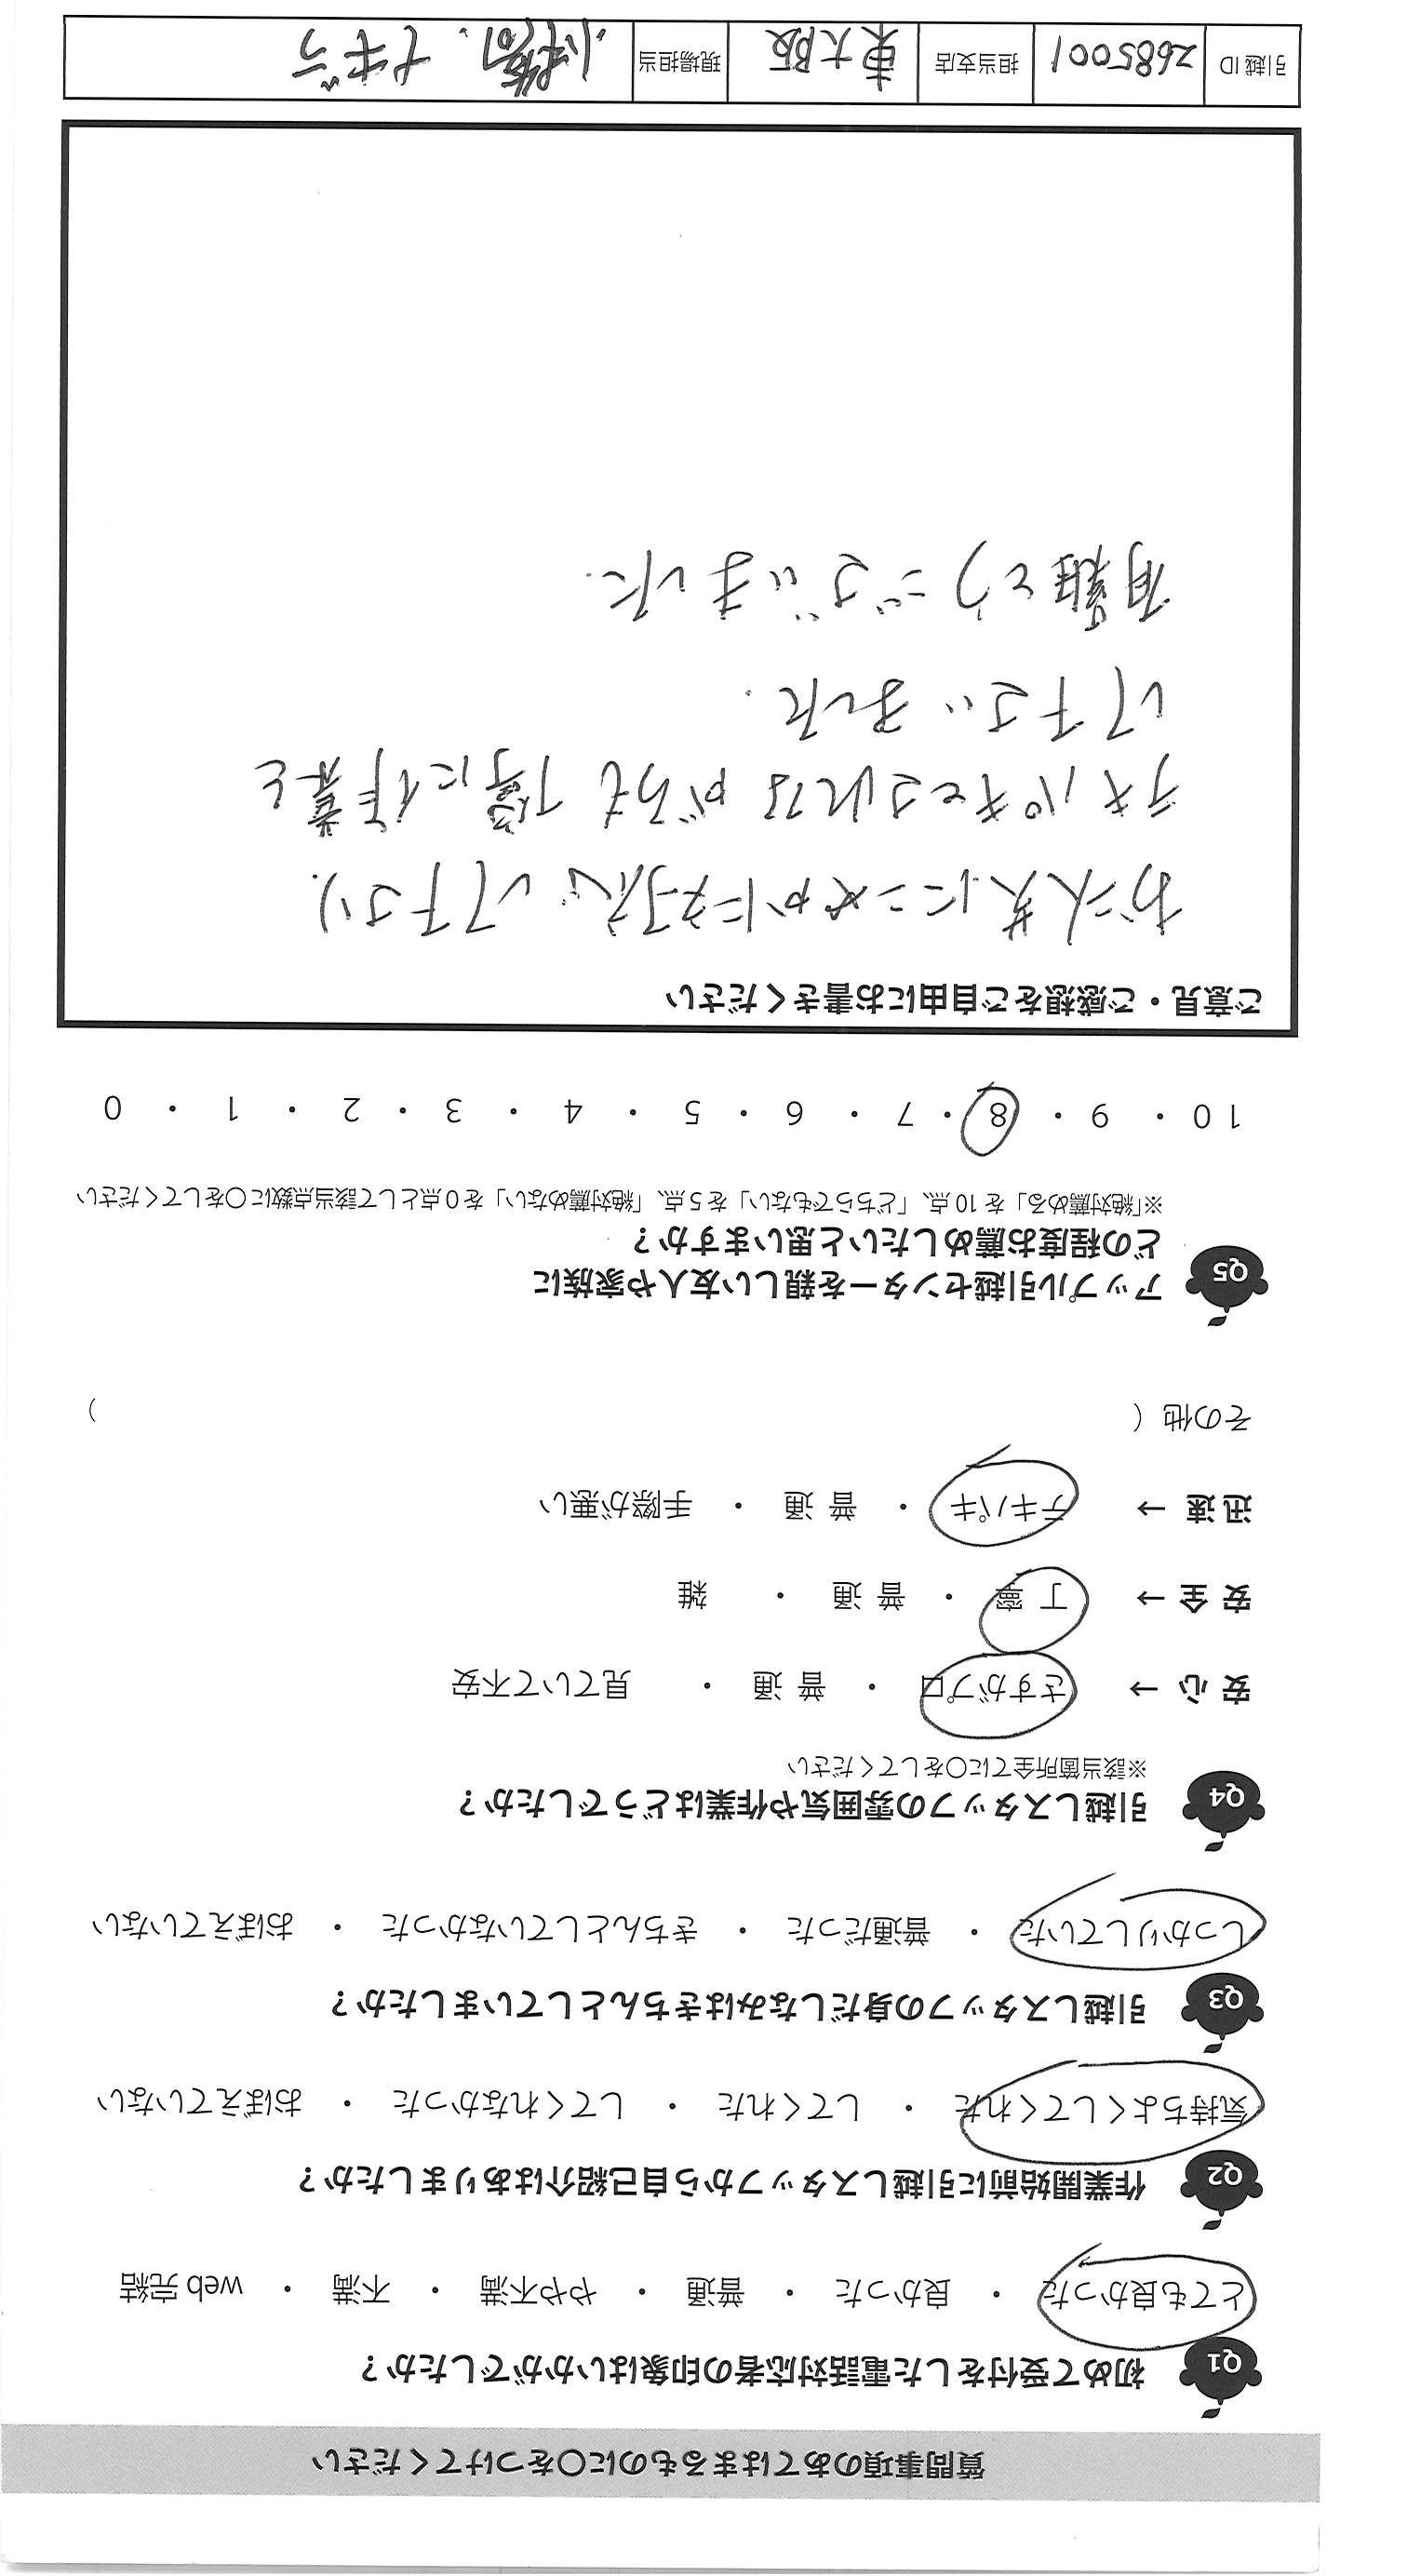 質問事項のあてはまるものに〇をつけてください
Q1 初めて受付をした電話対応者の印象はいかがでしたか？
とても良かった ・ 良かった ・ 普通 ・ やや不満 ・ 不満 ・ web 完結
Q2 作業開始前に引越しスタッフから自己紹介はありましたか？
気持ちよくしてくれた ・ してくれた ・ してくれなかった ・ おぼえていない
Q3 引越しスタッフの身だしなみはきちんとしていましたか？
しっかりしていた ・ 普通だった ・ きちんとしていなかった ・ おぼえていない
Q4 引越しスタッフの雰囲気や作業はどうでしたか？
※該当箇所全てに〇をしてください
安 心 → さすがプロ ・ 普 通 ・ 見ていて不安
安 全 → 丁 寧 ・ 普 通 ・ 雑
迅 速 → テキパキ ・ 普 通 ・ 手際が悪い
その他（ ）
Q5 アップル引越センターを親しい友人や家族に
どの程度お薦めしたいと思いますか？
※「絶対薦める」を 10 点、「どちらでもない」を 5 点、「絶対薦めない」を 0 点として該当点数に〇をしてください
10 ・ 9 ・ 8 ・ 7 ・ 6 ・ 5 ・ 4 ・ 3 ・ 2 ・ 1 ・ 0
ご意見・ご感想をご自由にお書きください
お二人共にこやかに対応して下さり、
テキパキとされながらも丁寧に作業を
して下さいました.
有難とうございました.
引越 ID 2685001 担当支店 東大阪 現場担当